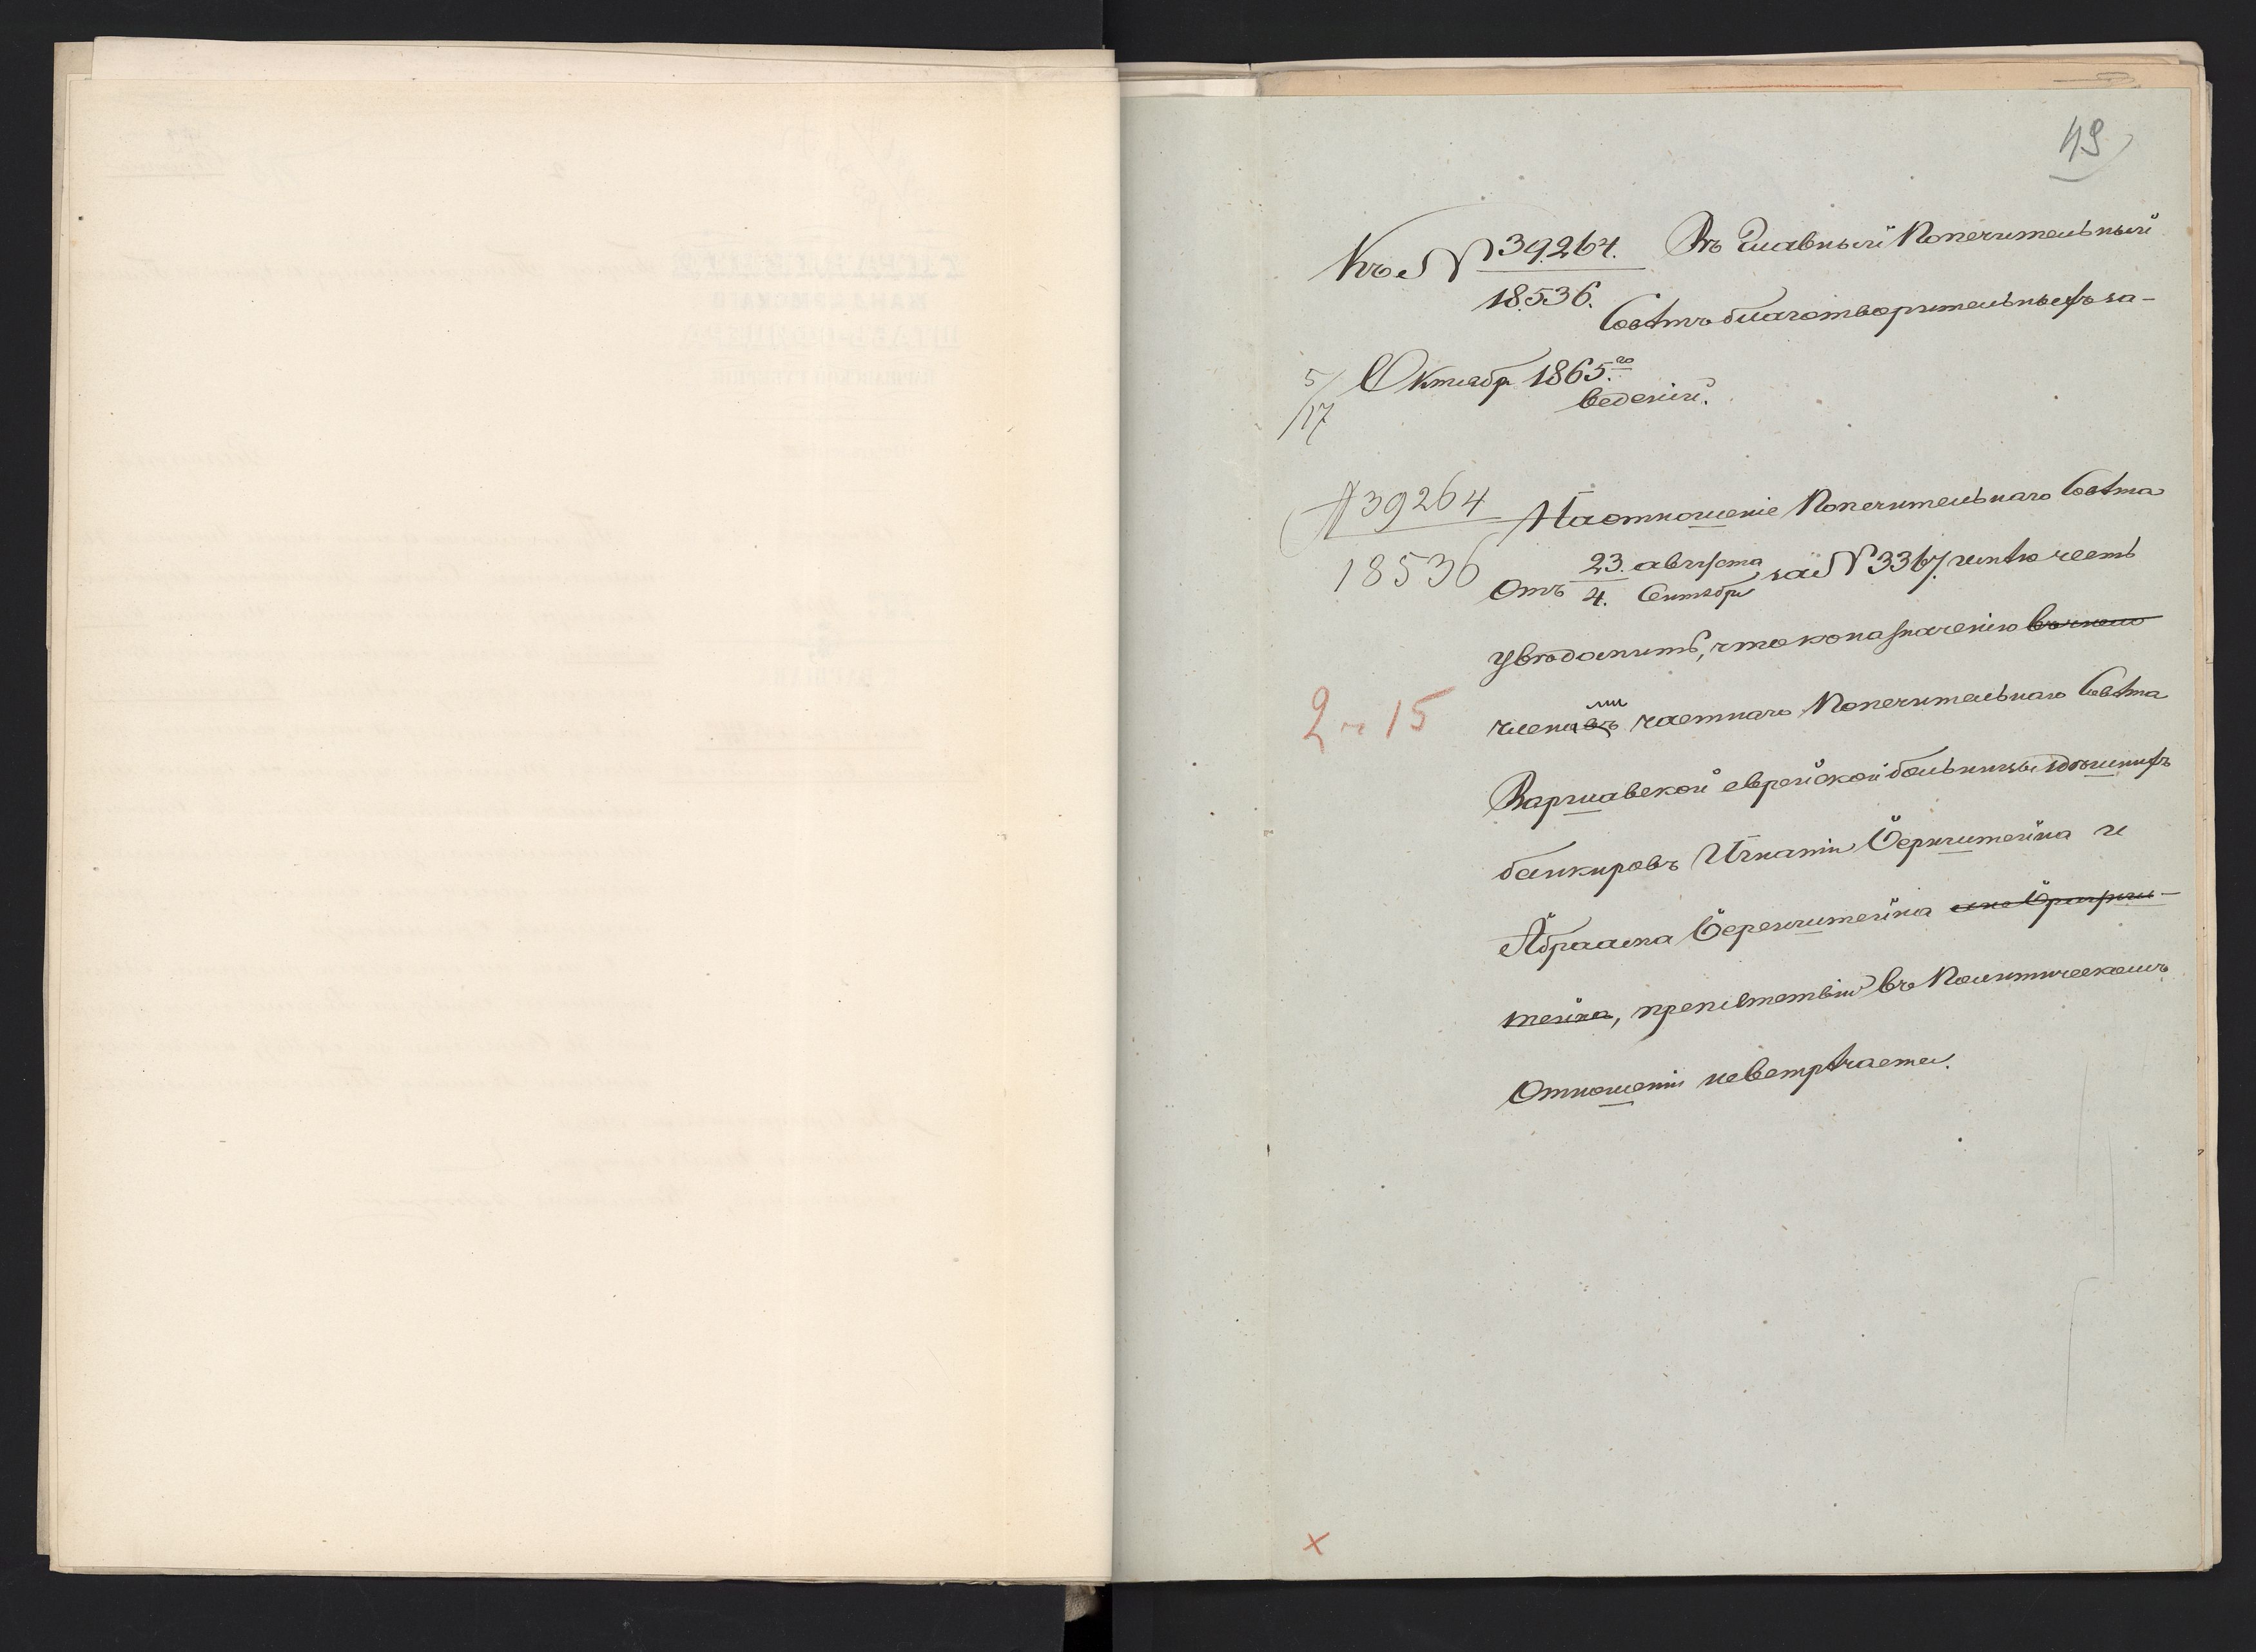 49
Къ № 39264.
18536.
Въ Главный Попечительный
Совѣтъ благотворительныхъ за-
ведений.
5/17 Октября 1865.го
№ 39264
18536
На отношеніе Попечительнаго Совѣта
отъ 23. августа
4. Сентября за № 3367. имѣю честь
увѣдомить, что къ назначенію
2 ч 15
членами частнаго Попечительнаго Совѣта
Варшавской еврейской больницы здѣшнихъ
банкировъ Игнатія Бернштейна и
Абраама Беренштейна
штейна, препятствія въ Политическомъ
Отношеніи невстрѣчается.